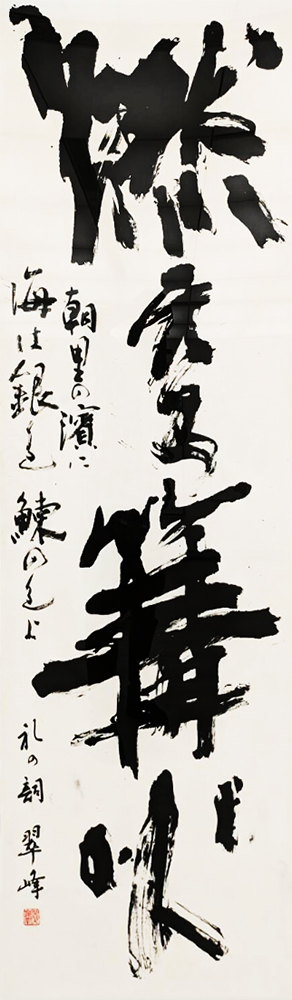 燃えろ篝火
朝里の濱に
海は銀色 鰊の色よ
礼の詞 翠峰